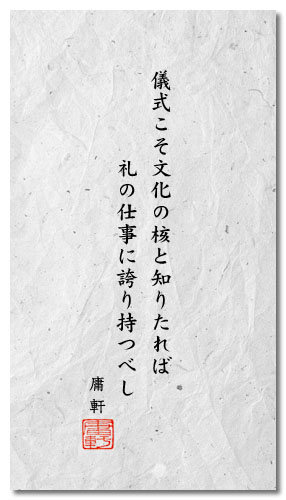 儀式こそ文化の核と知りたれば
礼の仕事に誇り持つべし
庸軒